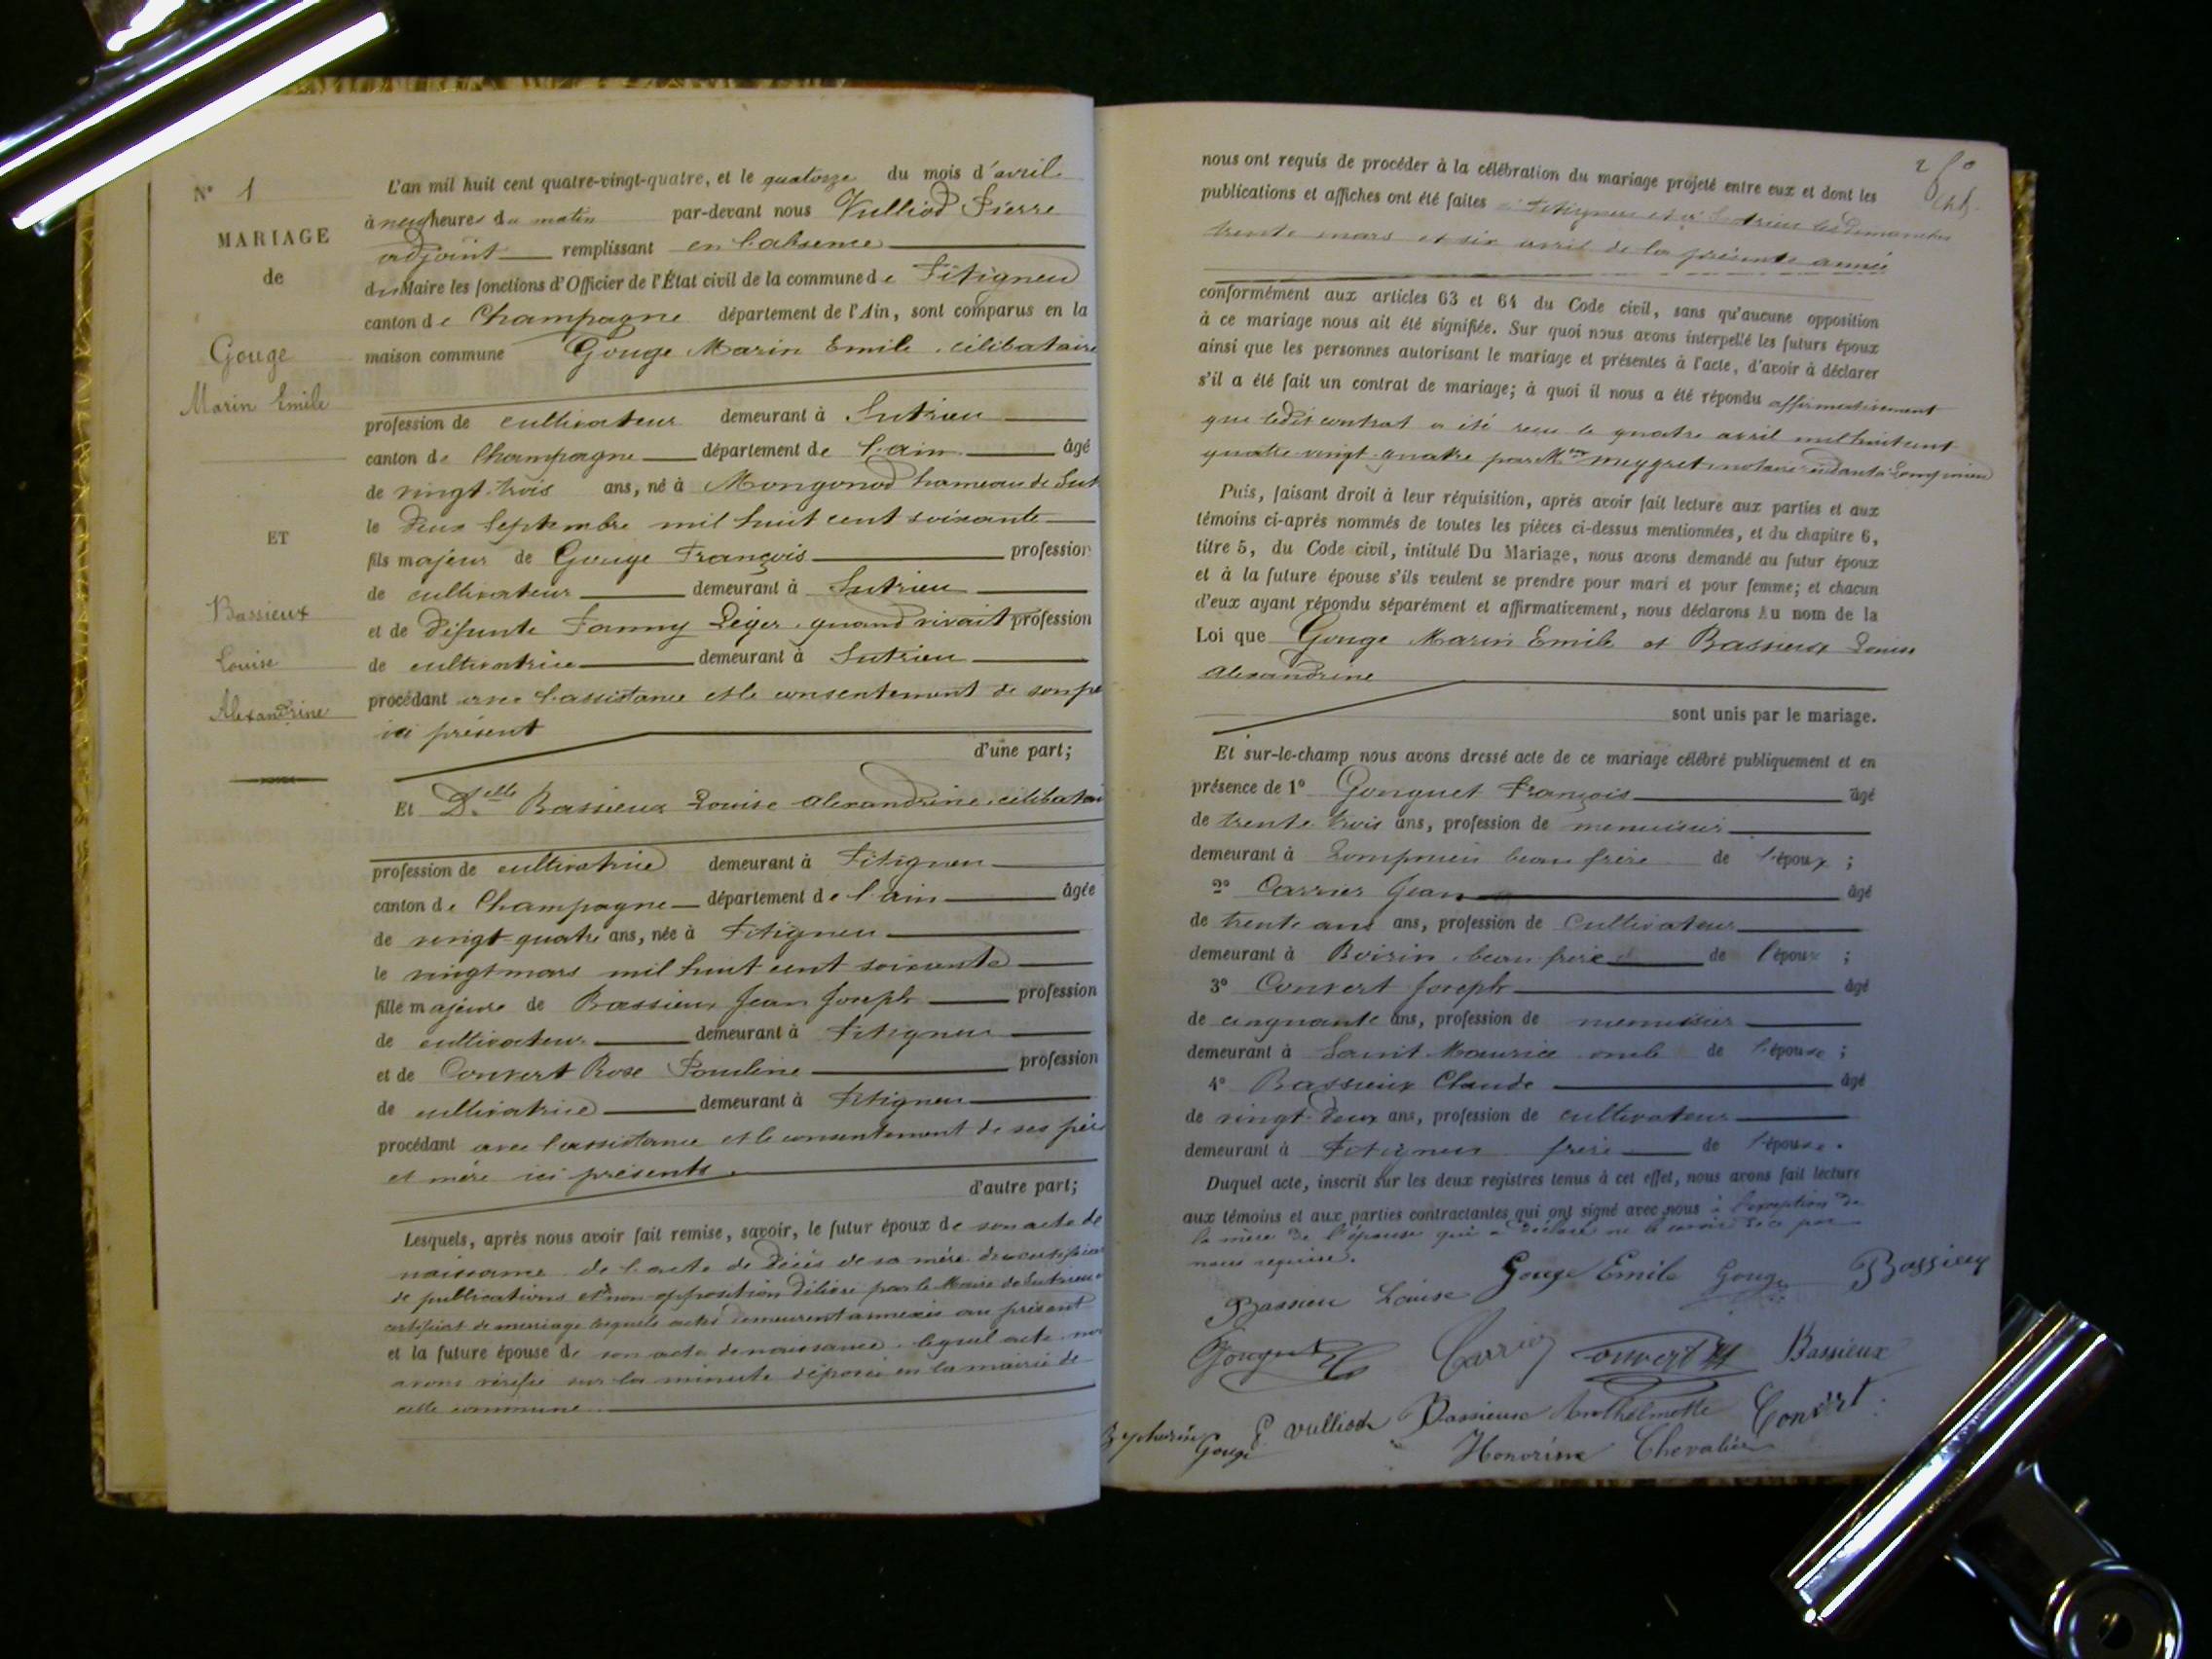 N° 1
MARIAGE
de
Gouge
Marin Emile
ET
Bassieux
Louise
Alexandrine
L'an mil huit cent quatre-vingt-quatre, et le quatorze du mois d'avril
à neuf heures du matin par-devant nous Vulliod Pierre
adjoint remplissant en l'absence
du Maire les fonctions d'Officier de l'État civil de la commune de Fitignieu
canton de Champagne département de l'Ain, sont comparus en la
maison commune Gouge Marin Emile, célibataire
profession de cultivateur demeurant à Sutrieu
canton de Champagne département de l'ain âgé
de vingt-trois ans, né à Mongonod hameau de Sut
le deux Septembre mil huit cent soixante
fils majeur de Gouge François profession
de cultivateur demeurant à Sutrieu
et de défunte Fanny Léger, quand vivait profession
de cultivatrice demeurant à Sutrieu
procédant avec l'assistance et le consentement de son pè
ici présent
d'une part;
Et Delle Bassieux Louise alexandrine, célibatai
profession de cultivatrice demeurant à Fitignieu
canton de Champagne département de l'ain âgée
de vingt-quatre ans, née à Fitignieu
le vingt mars mil huit cent soixante
fille majeure de Bassieux Jean Joseph profession
de cultivateur demeurant à Fitignieu
et de Convert Rose Pauline profession
de cultivatrice demeurant à Fitignieu
procédant avec l'assistance et le consentement de ses père
et mère ici présents.
d'autre part;
Lesquels, après nous avoir fait remise, savoir, le futur époux de son acte de
naissance de l'acte de décès de sa mère du certificat
de publications et de non opposition délivré par le Maire de Sutrieu
certificat de mariage lesquels actes demeurent annexés au présent
et la future épouse de son acte de naissance, lequel acte nous
avons vérifié sur la minute déposée en la mairie de
cette commune.
nous ont requis de procéder à la célébration du mariage projeté entre eux et dont les
publications et affiches ont été faites à Fitignieu et à Sutrieu les dimanches
trente mars et six avril de la présente année
conformément aux articles 63 et 64 du Code civil, sans qu'aucune opposition
à ce mariage nous ait été signifiée. Sur quoi nous avons interpellé les futurs époux
ainsi que les personnes autorisant le mariage et présentes à l'acte, d'avoir à déclarer
s'il a été fait un contrat de mariage; à quoi il nous a été répondu affirmativement
que ledit contrat a été reçu le quatre avril mil huit cent
quatre-vingt-quatre par Me Meygret notaire résidant à Lompnieu
Puis, faisant droit à leur réquisition, après avoir fait lecture aux parties et aux
témoins ci-après nommés de toutes les pièces ci-dessus mentionnées, et du chapitre 6,
titre 5, du Code civil, intitulé Du Mariage, nous avons demandé au futur époux
et à la future épouse s'ils veulent se prendre pour mari et pour femme; et chacun
d'eux ayant répondu séparément et affirmativement, nous déclarons Au nom de la
Loi que Gouge Marin Emile et Bassieux Louise
alexandrine
sont unis par le mariage.
Et sur-le-champ nous avons dressé acte de ce mariage célébré publiquement et en
présence de 1° Gonguet François âgé
de trente trois ans, profession de menuisier
demeurant à Lompnieu beau frère de l'époux ;
2° Carrier Jean âgé
de trente ans ans, profession de Cultivateur
demeurant à Boirin, beau frère de l'époux ;
3° Convert Joseph âgé
de cinquante ans, profession de menuisier
demeurant à Saint Maurice oncle de l'épouse ;
4° Bassieux Claude âgé
de vingt-deux ans, profession de cultivateur
demeurant à Fitignieu frère de l'épouse.
Duquel acte, inscrit sur les deux registres tenus à cet effet, nous avons fait lecture
aux témoins et aux parties contractantes qui ont signé avec nous à l'exception de
la mère de l'épouse qui a déclaré ne le savoir de ce par
nous requise.
Gouge Emile Gouge Bassieux
Bassieu Louise
Gonguet Carrier Convert Bassieux
Zephirin Gouge P. Vulliod Bassieux Anthelmette Convert
Honorine Chevalier